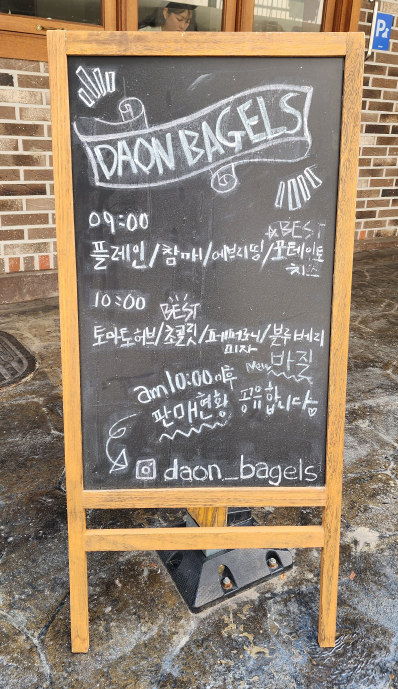 DAON BAGELS
09:00
★BEST
플레인/참깨/에브리띵/포테이토
치즈
10:00
BEST
토마토허브/초콜릿/페퍼로니/블루베리
피자
New 바질
am10:00 이후
판매현황 공유합니다♡
daon_bagels
P